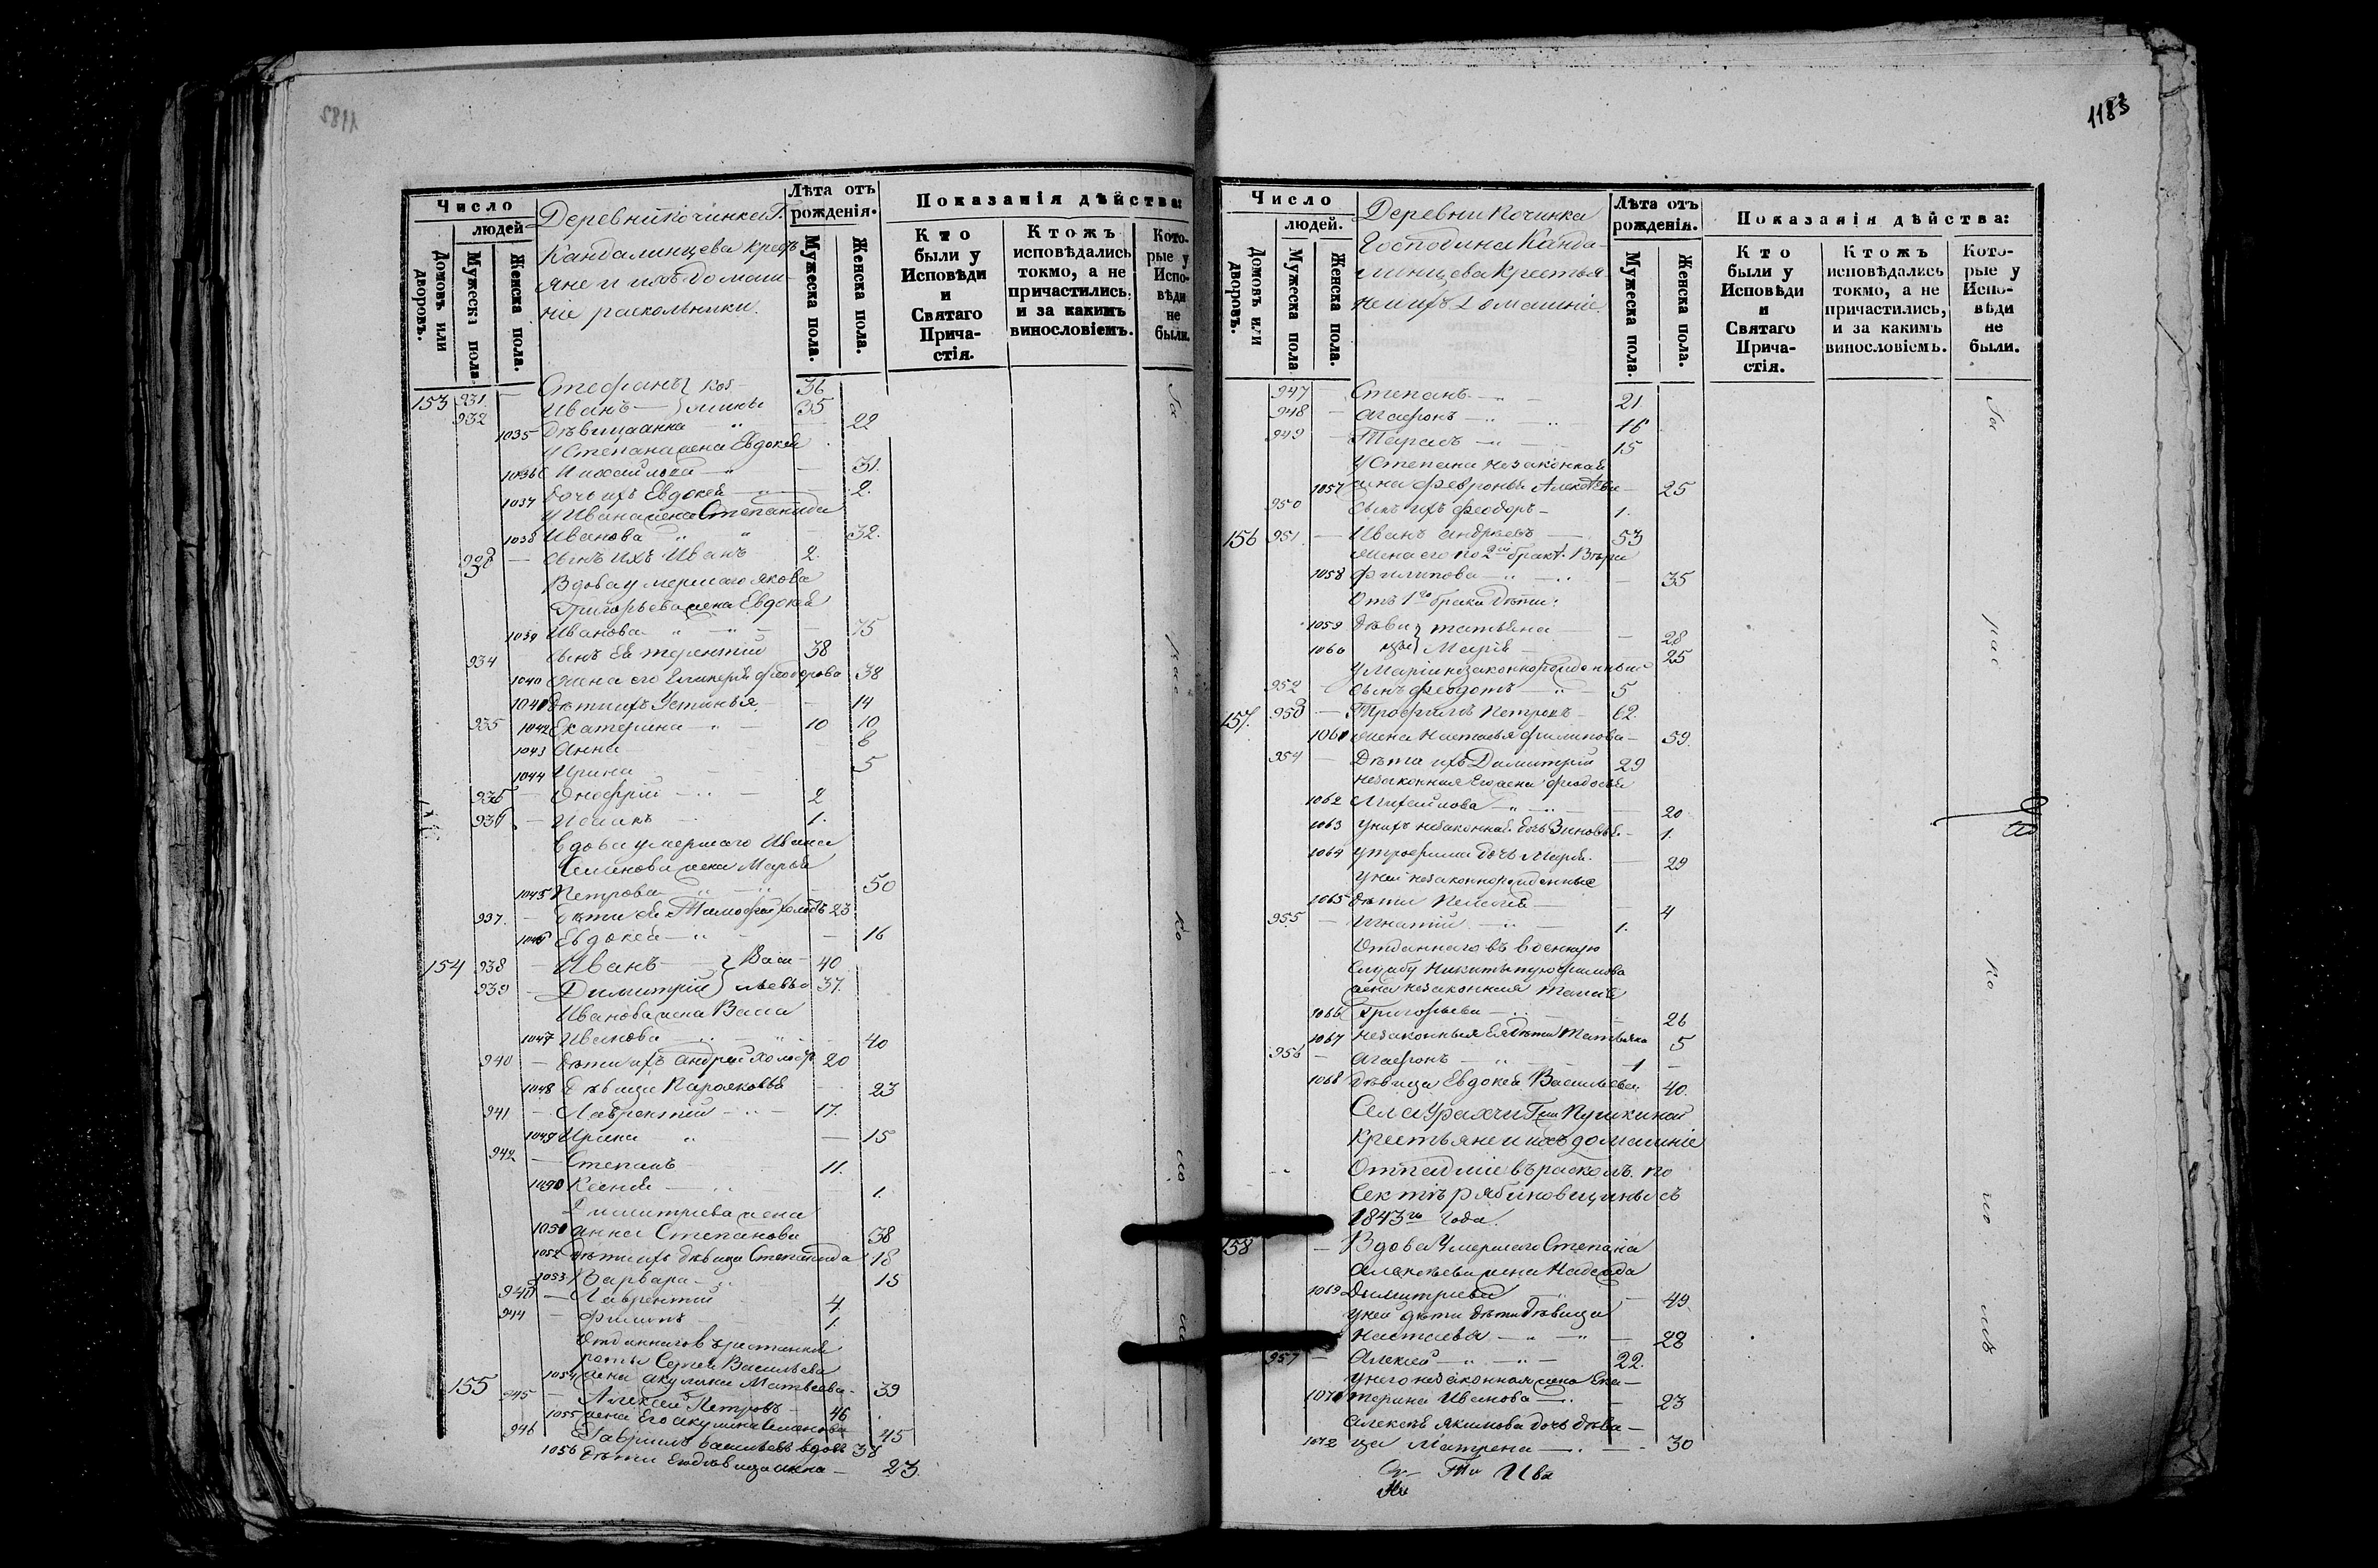 1182
Число
людей
Домовъ или дворовъ.
Мужеска пола
Женска пола.
Деревни Починка Г.
Кандалинцева крестъ
яне и ихъ домаш-
ніе раскольники.
Лѣта отъ рожденія.
Мужеска пола.
Женска пола.
Показанія дѣйства:
Кто были у Исповѣди и Святаго Прича-стія.
Ктожъ исповѣдались токмо, а не причастились, и за какимъ винословіемъ.
Кото-рые у Испо-вѣди не были.
153 931. — Стефанъ 36
932 Иванъ 35
1035 Дѣвица Анна — 22
У Степана жена Евдокея
1036 Михайлова — 31.
1037 Дочь ихъ Евдокея — 2.
У Ивана жена Степанида
1038 Иванова 32.
933 — сынъ ихъ Иванъ 2.
Вдова умершаго Якова
Григорьева жена Евдокея
1039 Иванова — 75
934 сынъ ея Терентій 38
1040 жена его Феодорова 38
1041 Дѣти ихъ Устинья — 14
935 1042 Екатерина — 10 10
1043 Анна — 6
1044 Ирина 5
935 — Онофрій — 2
936 — Исаакъ 1.
Вдова умершаго Ивана
Семенова жена Марья
1045 Петрова 50
937. — Дѣти ея Тимофей холостъ 23
1046 Евдокея — 16
154 938 — Иванъ — } Васи- 40
939 — Димитрій } льевы 37.
Иванова жена Васса
1047 Иванова — 40
940 — Дѣти ихъ Андрей холост 20
1048 Дѣвица — 23
941 — Лаврентій — 17.
1049 Ирина — 15
942 — Степанъ 11.
1050 Ксенія — 1.
Димитріева жена
1051 Анна Степанова 38
1052 Дѣти ихъ дѣвица Степанида 18
1053 Варвара — 15
943 — Лаврентій 4.
944 — Филипъ 1.
Сергея Васильева
1054 жена Акулина Матвеева — 39
155 945 — Алексей Петровъ — 46
1055 жена его Акулина Семенова 45
946 Гавріилъ Васильевъ вдовъ 38
1056 Дѣти его дѣвица Анна — 23.
За
рас
ко
1183
Число
людей.
Домовъ или дворовъ.
Мужеска пола
Женска пола.
Деревни Починка
Господина Канда-
линцева крестья
не и ихъ домашніе.
Лѣта отъ рожденія.
Мужеска пола.
Женска пола.
Показанія дѣйства:
Кто были у Исповѣди и Святаго Прича-стія.
Ктожъ исповѣдались токмо, а не причастились, и за какимъ винословіемъ.
Кото-рые у Испо-вѣди не были.
947 — Степанъ — 21.
948 — Агафонъ — 16
949 — Тарасъ — 15
У Степана незаконная
1057 жена Февронья Алексѣева — 25
950 Сынъ ихъ Феодоръ — 1.
156 951 — Иванъ Андреевъ — 53
жена его по 2му браку Вѣра
1058 Филипова — 35
Отъ 1го брака дѣти:
1059 Дѣви } Татьяна — 28
1060 цы } Марія — 25
У Маріи незаконнорожденный
952 — сынъ Феодотъ — 5
157. 953 — Трофимъ Петровъ — 62.
1061 жена Настасья Филипова — 59.
954 — Дѣти ихъ Димитрій 29
незаконная его жена Феодосья
1062 Михайлова — 20
1063 У нихъ незаконная дочь Зиновья — 1.
1064 У Трофима дочь Марія — 29
У ней незаконнорожденные
1065 Дѣти Пелагія — 4
955 — Игнатій — 1.
Отданнаго въ военную
службу Никиты Трофимова
жена незаконная
1066 Григорьева — 26
1067 незаконныя ея дѣти Татьяна 5
956 — Агафонъ — 1 —
1068 Дѣвица Евдокея Васильева 40.
Села Урахчи Гжи Пушкиной
крестьяне и ихъ домашніе
Отпадшіе въ расколъ по
сектѣ рябиновщины съ
1843го года.
158 — Вдова умершаго Степана
Алексѣева жена Надежда
1069 Димитріева — 49.
У ней дѣти дѣвица
Настасья — 28
957 — Алексей — 22.
У него незаконная жена Ека-
1071 терина Иванова — 23
Алексѣя Якимова дочь дѣви-
1072 ца Матрена — 30
За
рас
ко
Ива